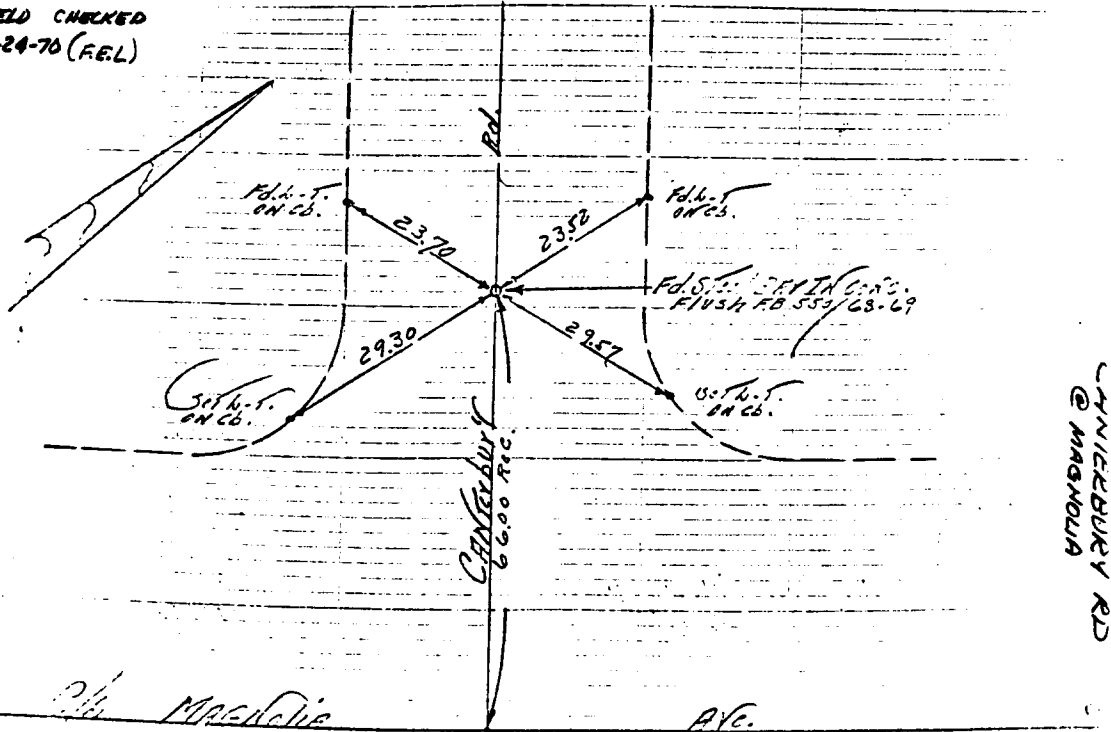 FIELD CHECKED
-24-70 (F.E.L)
Rd.
Fd. L.-T.
ON Cb.
Fd. L.-T
ON Cb.
23.70
23.52
Fd. IN CONC.
Flush F.B. 63-69
29.30
29.57
Set L.-T.
ON Cb.
Set L.-T.
ON Cb.
CANTERBURY
66.00 Rec.
MAGNOLIA AVE.
CANTERBURY RD
@ MAGNOLIA